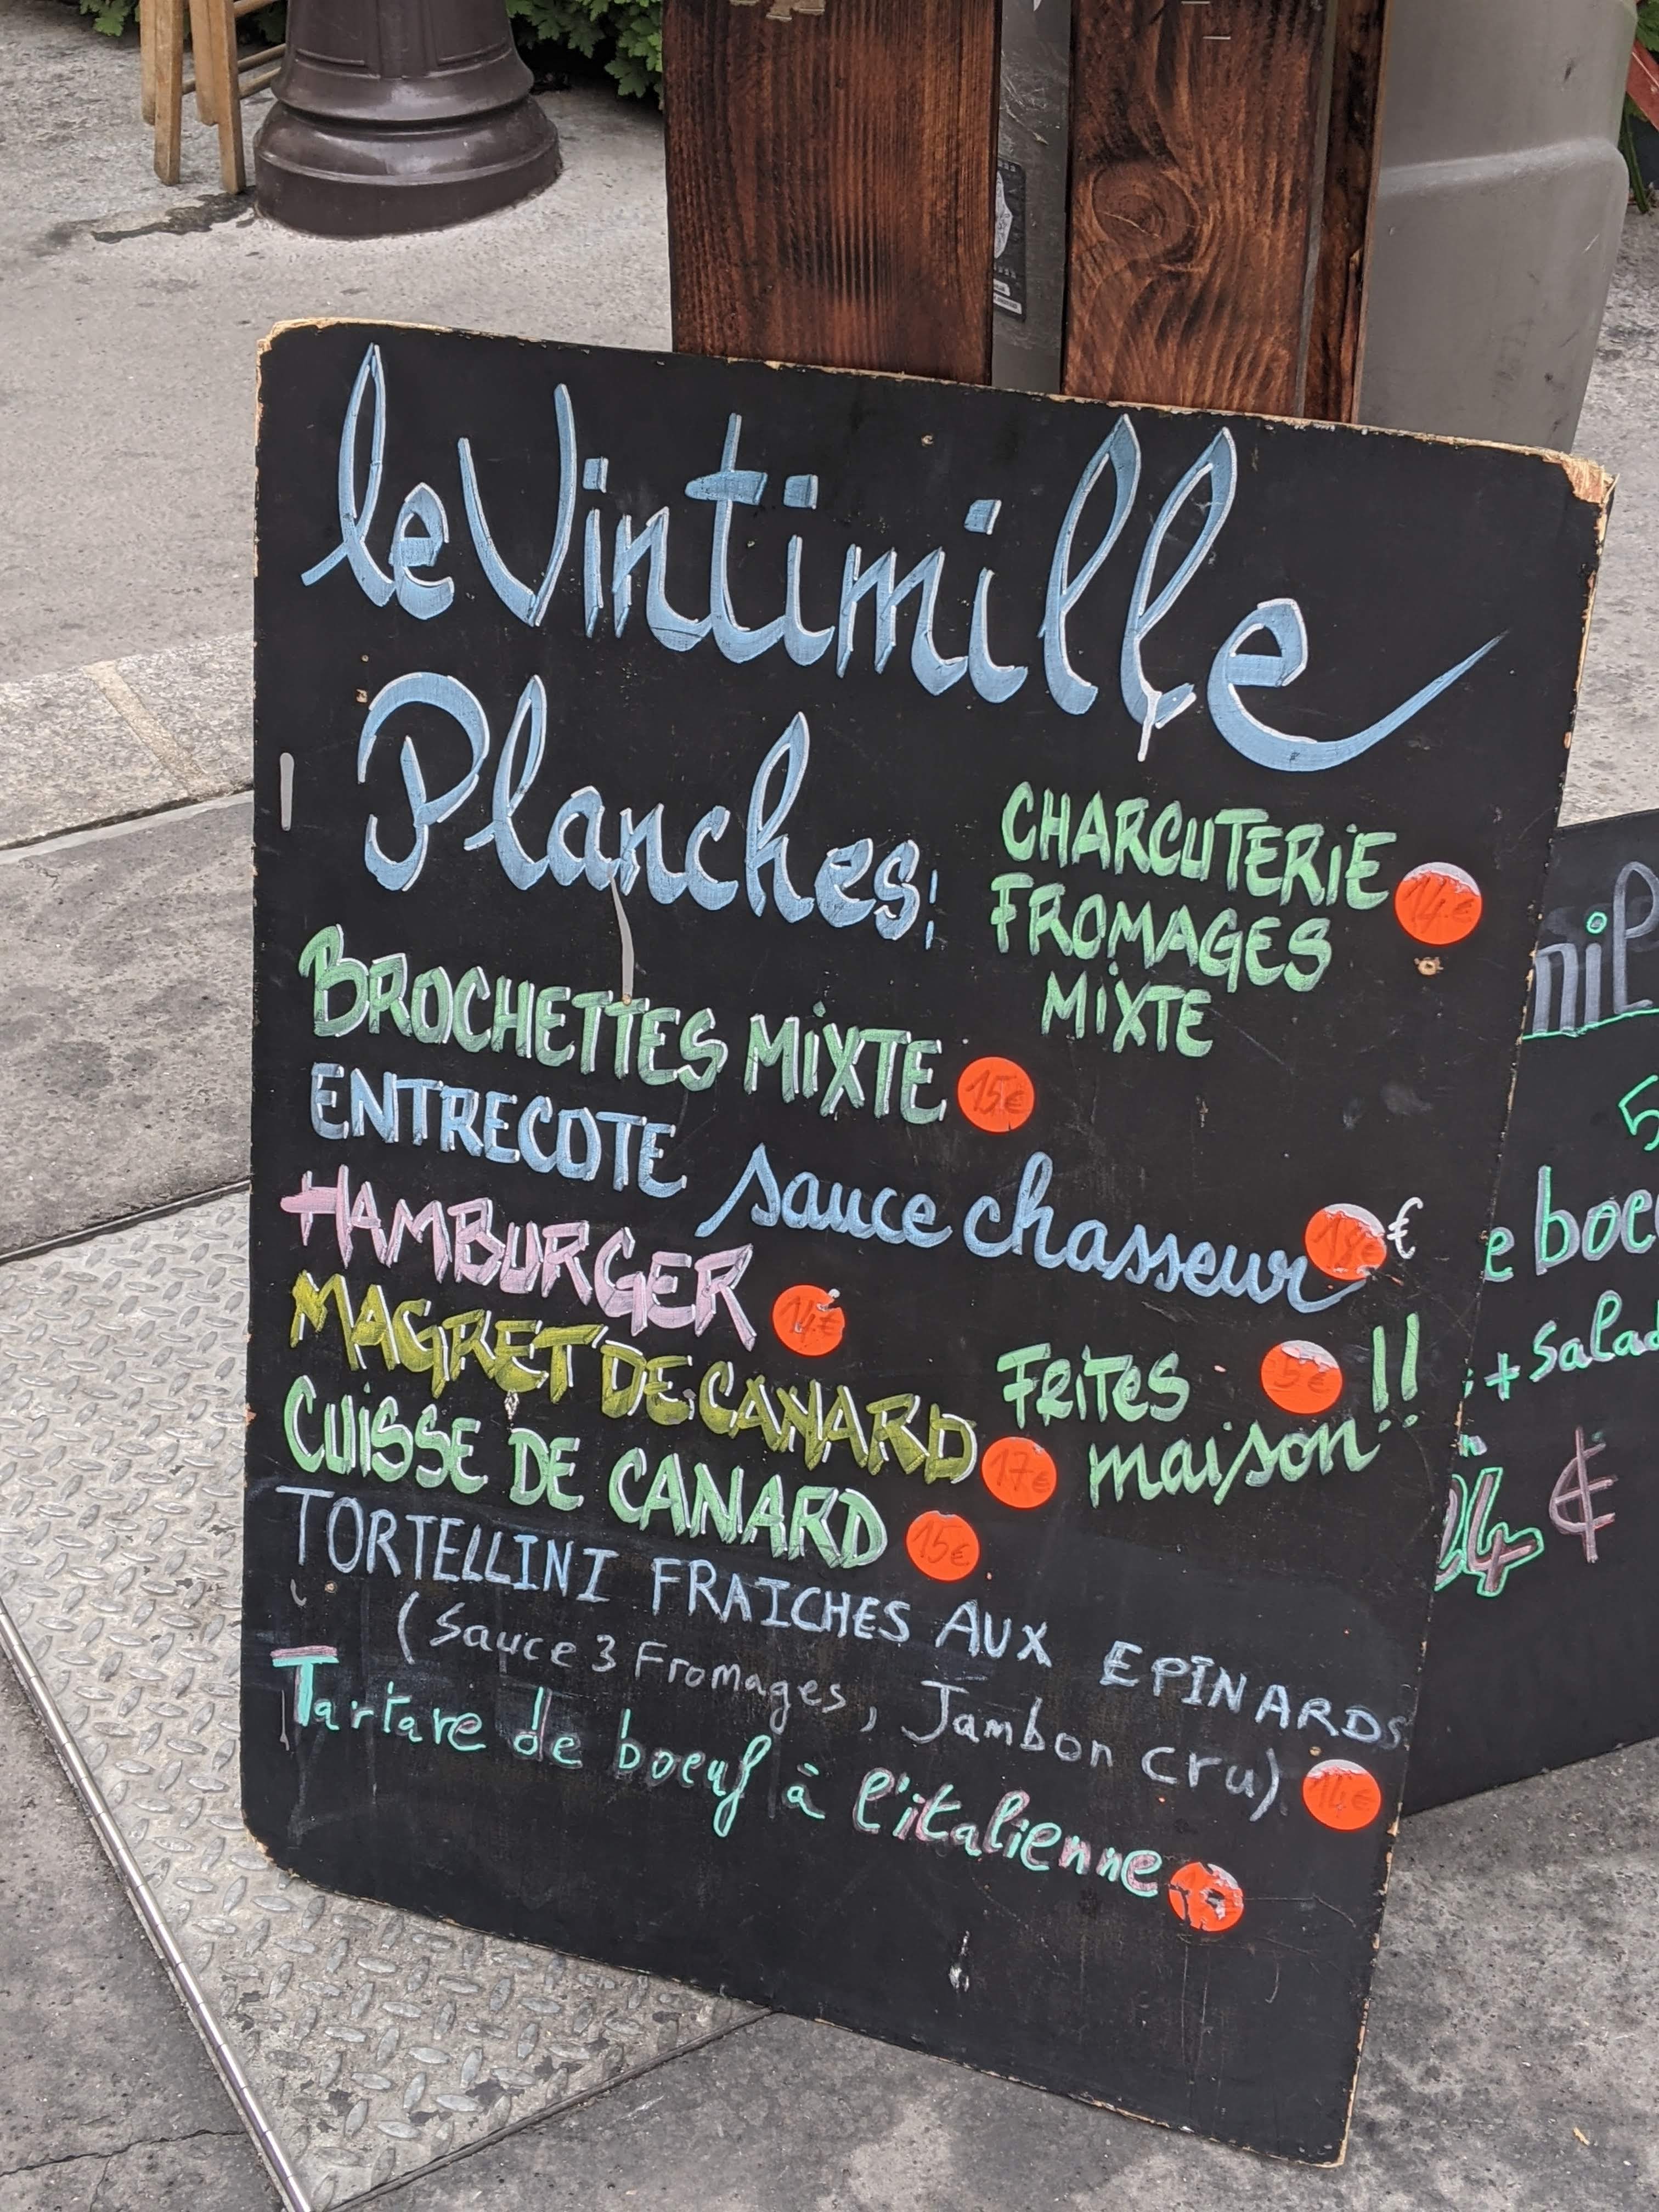 le Vintimille
Planches:
CHARCUTERIE 14€
FROMAGES
MIXTE
BROCHETTES MIXTE 15€
ENTRECOTE sauce chasseur €
HAMBURGER 14€
MAGRET DE CANARD 17€
Frites 5€ !!
maison
CUISSE DE CANARD 15€
TORTELLINI FRAICHES AUX EPINARDS
(Sauce 3 Fromages, Jambon cru) 14€
Tartare de boeuf à l'italienne
nil
5
e boe
+ Salad
24 €